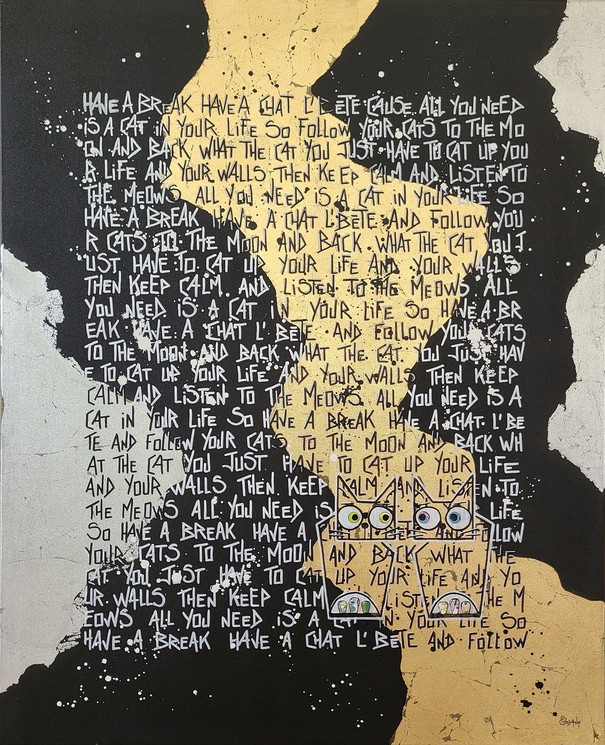 HAVE A BREAK HAVE A CHAT L'BETE CAUSE ALL YOU NEED
IS A CAT IN YOUR LIFE SO FOLLOW YOUR CATS TO THE MO
ON AND BACK WHAT THE CAT YOU JUST HAVE TO CAT UP YOU
R LIFE AND YOUR WALLS THEN KEEP CALM AND LISTEN TO
THE MEOWS ALL YOU NEED IS A CAT IN YOUR LIFE SO
HAVE A BREAK HAVE A CHAT L'BETE AND FOLLOW YOU
R CATS TO THE MOON AND BACK WHAT THE CAT YOU J
UST HAVE TO CAT UP YOUR LIFE AND YOUR WALLS
THEN KEEP CALM AND LISTEN TO THE MEOWS ALL
YOU NEED IS A CAT IN YOUR LIFE SO HAVE A BR
EAK HAVE A CHAT L'BETE AND FOLLOW YOUR CATS
TO THE MOON AND BACK WHAT THE CAT YOU JUST HAV
E TO CAT UP YOUR LIFE AND YOUR WALLS THEN KEEP
CALM AND LISTEN TO THE MEOWS ALL YOU NEED IS A
CAT IN YOUR LIFE SO HAVE A BREAK HAVE A CHAT L'BE
TE AND FOLLOW YOUR CATS TO THE MOON AND BACK WH
AT THE CAT YOU JUST HAVE TO CAT UP YOUR LIFE
AND YOUR WALLS THEN KEEP CALM AND LISTEN TO
THE MEOWS ALL YOU NEED IS LIFE
SO HAVE A BREAK HAVE A LLOW
YOUR CATS TO THE MOON AND BACK WHAT THE
CAT YOU JUST HAVE TO CAT UP YOUR LIFE AND YO
UR WALLS THEN KEEP CALM LISTEN THE M
EOWS ALL YOU NEED IS A CAT IN YOUR LIFE SO
HAVE A BREAK HAVE A CHAT L'BETE AND FOLLOW